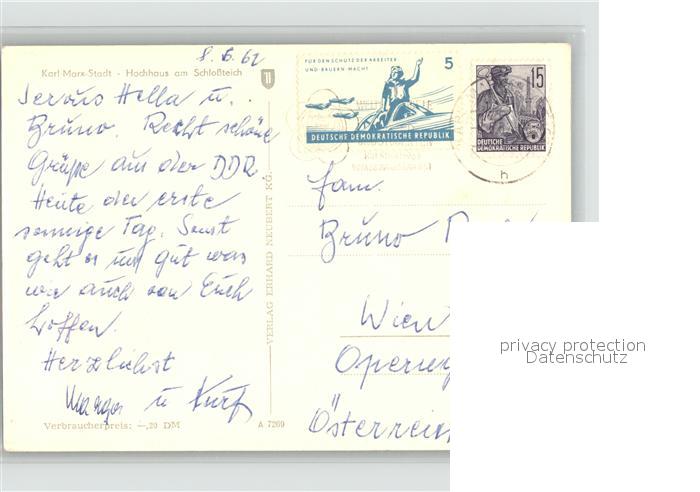 8. 6. 62
Karl Marx-Stadt - Hochhaus am Schloßteich
Servus Hella u.
Bruno. Recht schöne
Grüße aus der DDR
Heute der erste
sonnige Tag. Sonst
geht es uns gut was
wir auch von Euch
hoffen.
Herzlichst
u Kurt
Verbraucherpreis: —,20 DM
A 7269
VERLAG ERHARD NEUBERT KG.
FÜR DEN SCHUTZ DER ARBEITER
UND BAUERN-MACHT
5
DEUTSCHE DEMOKRATISCHE REPUBLIK
15
DEUTSCHE
DEMOKRATISCHE REPUBLIK
h
Fam.
Bruno
Wien
Österreich
privacy protection
Datenschutz